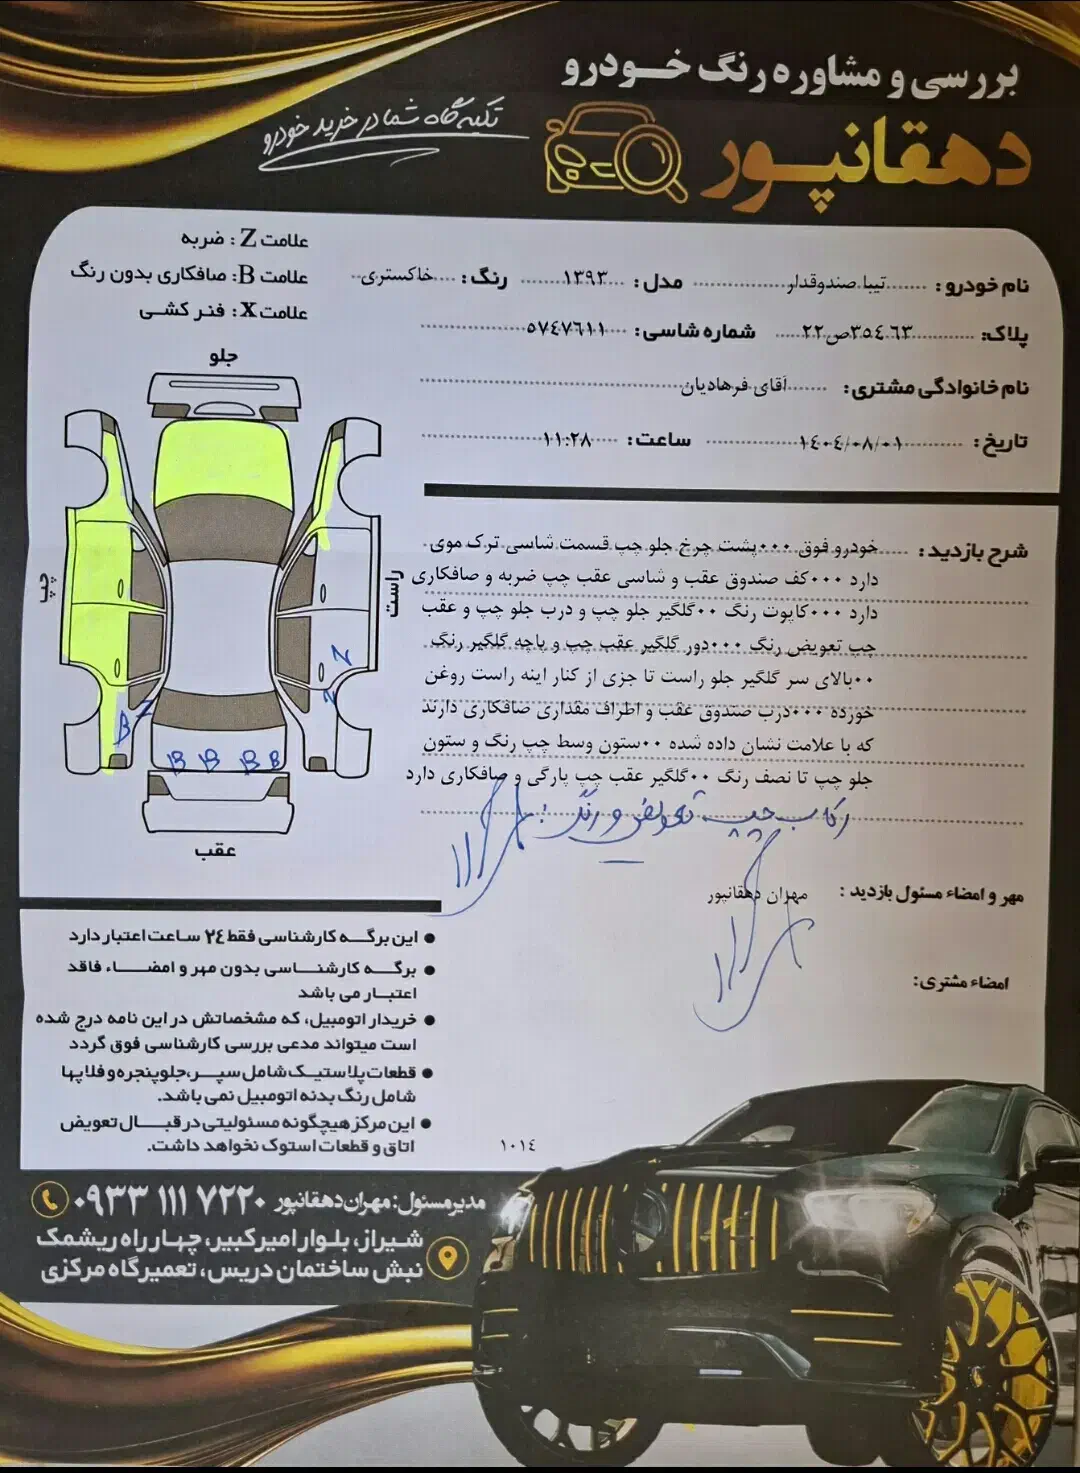 بررسی و مشاوره رنگ خودرو
دهقانپور
تکیه گاه شما در خرید خودرو
علامت Z : ضربه
علامت B: صافکاری بدون رنگ
علامت X: فنر کشی
نام خودرو: تیبا صندوقدار مدل: ۱۳۹۳ رنگ: خاکستری
پلاک: ۶۳ ۳۵۴ص۲۲ شماره شاسی: ۵۷۴۷۶۱۱
نام خانوادگی مشتری: آقای فرهادیان
تاریخ: ۱۴۰۴/۰۸/۰۱ ساعت: ۱۱:۲۸
جلو
چپ
راست
عقب
Z
N
N
B
B B B B
شرح بازدید: خودرو فوق ۰۰۰پشت چرخ جلو چپ قسمت شاسی ترک موی
دارد ۰۰۰کف صندوق عقب و شاسی عقب چپ ضربه و صافکاری
دارد ۰۰۰کاپوت رنگ ۰۰گلگیر جلو چپ و درب جلو چپ و عقب
چپ تعویض رنگ ۰۰۰دور گلگیر عقب چپ و پاچه گلگیر رنگ
۰۰بالای سر گلگیر جلو راست تا جزی از کنار اینه راست روغن
خورده ۰۰۰درب صندوق عقب و اطراف مقداری صافکاری دارند
که با علامت نشان داده شده ۰۰ستون وسط چپ رنگ و ستون
جلو چپ تا نصف رنگ ۰۰گلگیر عقب چپ پارگی و صافکاری دارد
رکاب چپ تعویض و رنگ
مهر و امضاء مسئول بازدید : مهران دهقانپور
امضاء مشتری:
● این برگه کارشناسی فقط ۲۴ ساعت اعتبار دارد
● برگه کارشناسی بدون مهر و امضاء فاقد
اعتبار می باشد
● خریدار اتومبیل، که مشخصاتش در این نامه درج شده
است میتواند مدعی بررسی کارشناسی فوق گردد
● قطعات پلاستیک شامل سپر، جلو پنجره و فلاپها
شامل رنگ بدنه اتومبیل نمی باشد.
● این مرکز هیچگونه مسئولیتی در قبال تعویض
اتاق و قطعات استوک نخواهد داشت.
۱۰۱٤
مدیر مسئول: مهران دهقانپور ۰۹۳۳ ۱۱۱ ۷۲۲۰
شیراز، بلوار امیرکبیر، چهارراه ریشمک
نبش ساختمان دریس، تعمیرگاه مرکزی